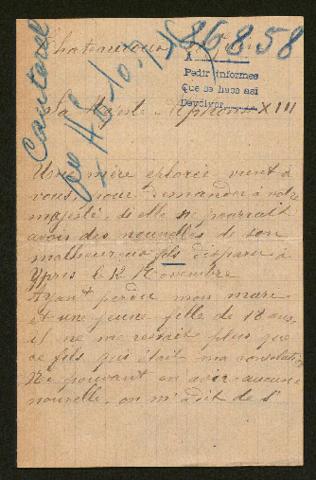 Chateauroux
86.858
Cantaret
A
Pedir informes
Que se hace así
Devolver
Sa Majesté Alphonse XIII
Une mère éplorée vient à
vous pour demander à votre
majesté, si elle ne pourrait
avoir des nouvelles de son
malheureux fils disparu à
Ypres le 12 Novembre
Ayant perdu mon mari
et une jeune fille de 18 ans,
il ne me restait plus que
ce fils qui était ma consolation
Ne pouvant en avoir aucune
nouvelle, on m'a dit de